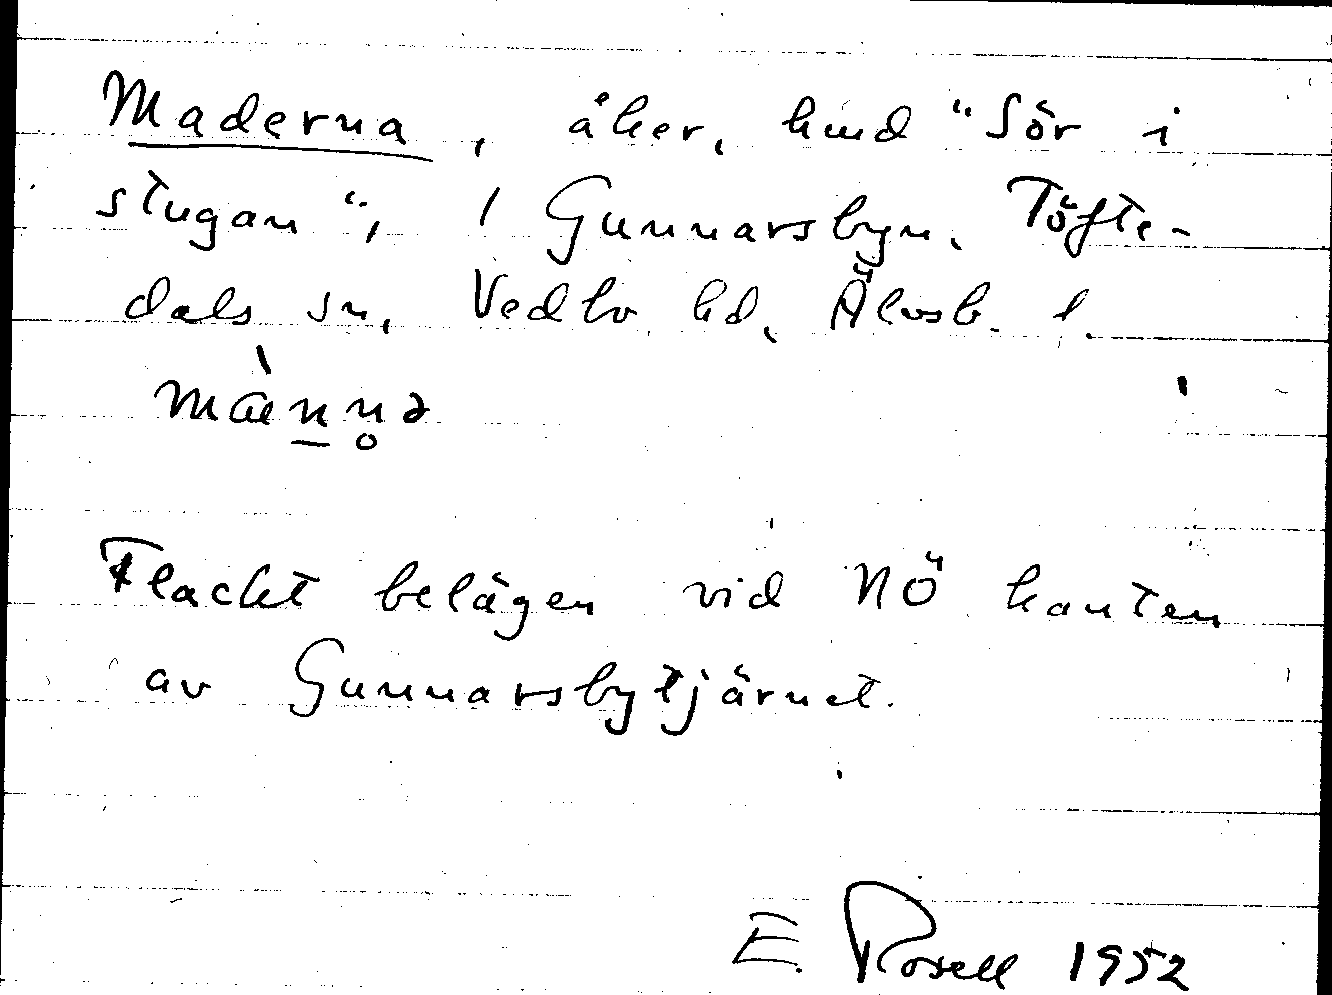 Maderna, åker, hmd "Sör i
stugan", 1 Gunnarsbyn, Töfte-
dals sn, Vedbo hd, Älvsb. l.
mæ̀n̲n̥ə
Flackt belägen vid NÖ kanten
av Gunnarsbytjärnet.
E. Rosell 1952